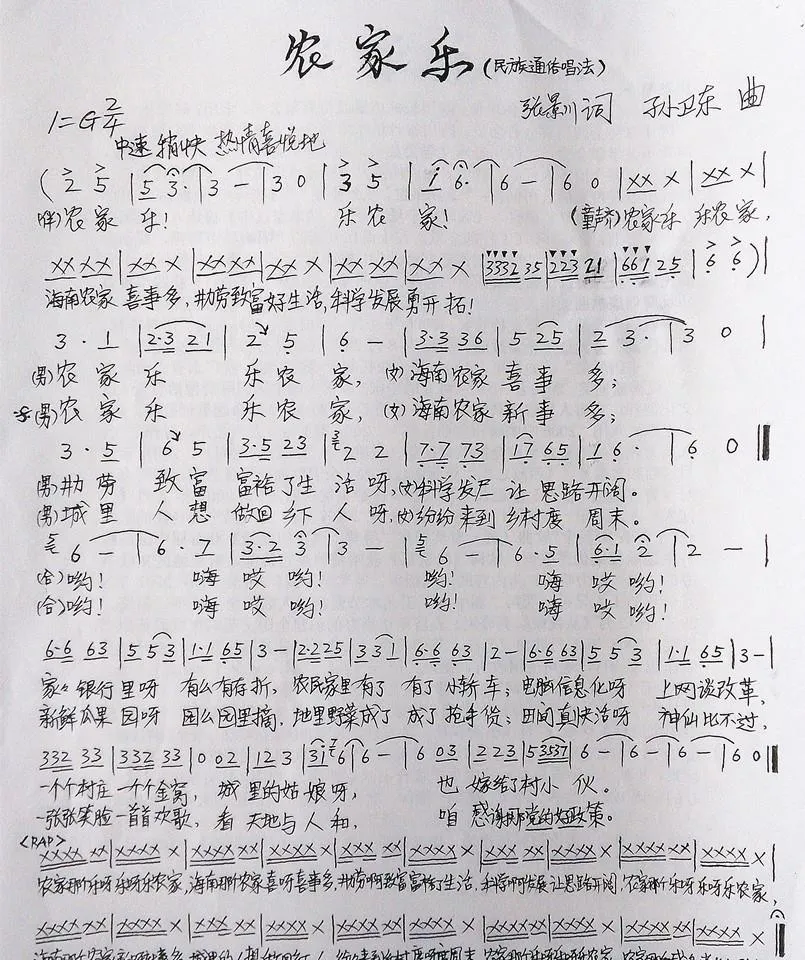 农家乐(民族通俗唱法)
1=G 2/4
张景川词 孙卫东 曲
中速稍快 热情喜悦地
(2 5 | 5 3· | 3 — | 3 0 | 3 5 | 1 6· | 6 — | 6 0 | XX X | XX X |
(伴)农家 乐! 乐农 家! (童声齐)农家乐 乐农家,
XX XX | XX X | XX XX | XX XX | XX XX | XX X | 3332 35 | 223 21 | 661 25 | 6 6) |
海南农家 喜事多,勤劳致富好生活,科学发展勇开拓!
3· 1 | 2·3 21 | 2 5 | 6 — | 3·3 36 | 5 25 | 2 3· | 3 0 |
(男)农 家 乐 乐 农 家, (女)海南农家 喜 事 多;
(男)农 家 乐 乐 农 家, (女)海南农家 新 事 多;
3· 5 | 6 5 | 3·5 23 | 2 2 | 7·7 73 | 17 65 | 1 6· | 6 0 ‖
(男)勤 劳 致 富 富裕了生 活 呀,(女)科学发展 让 思路开阔。
(男)城 里 人 想 做回乡下 人 呀,(女)纷纷来到 乡村度 周末。
6 — | 6· 7 | 3·2 3 | 3 — | 6 — | 6· 5 | 6·1 2 | 2 — |
(合)哟! 嗨 哎 哟! 哟! 嗨 哎 哟!
(合)哟! 嗨 哎 哟! 哟! 嗨 哎 哟!
6·6 63 | 5 5 3 | 1·1 65 | 3 — | 2·2 25 | 3 3 1 | 6·6 63 | 2 — | 6·6 63 | 5 5 3 | 1·1 65 | 3 — |
家々 银行里呀 有么有存折, 农民家里有了 有了 小轿车; 电脑信息化呀 上网谈改革,
新鲜瓜果 园呀 园么园里摘, 地里野菜成了 成了 抢手货; 田间真快活呀 神仙比不过,
332 33 | 332 33 | 0 02 | 12 3 | 31 6 | 6 — | 6 03 | 2 23 | 5 3537 | 6 — | 6 — | 6 — | 6 0 ‖
一个个村庄一个个金窝, 城里的姑娘呀, 也 嫁给了村小 伙。
一张张笑脸一首首欢歌, 看 天地与 人 和, 咱 感谢那党的好政策。
<RAP>
XXXX XX | XXXX X | XXXX XX | XXXX X | XXXX XX | XXXX X | XXXX XX | XXXX X | XXXX XX | XXXX X |
农家那个乐呀乐呀乐农家,海南那个农家喜呀喜事多,勤劳啊致富富裕了生活,科学啊发展让思路开阔,农家那个乐呀乐呀乐农家,